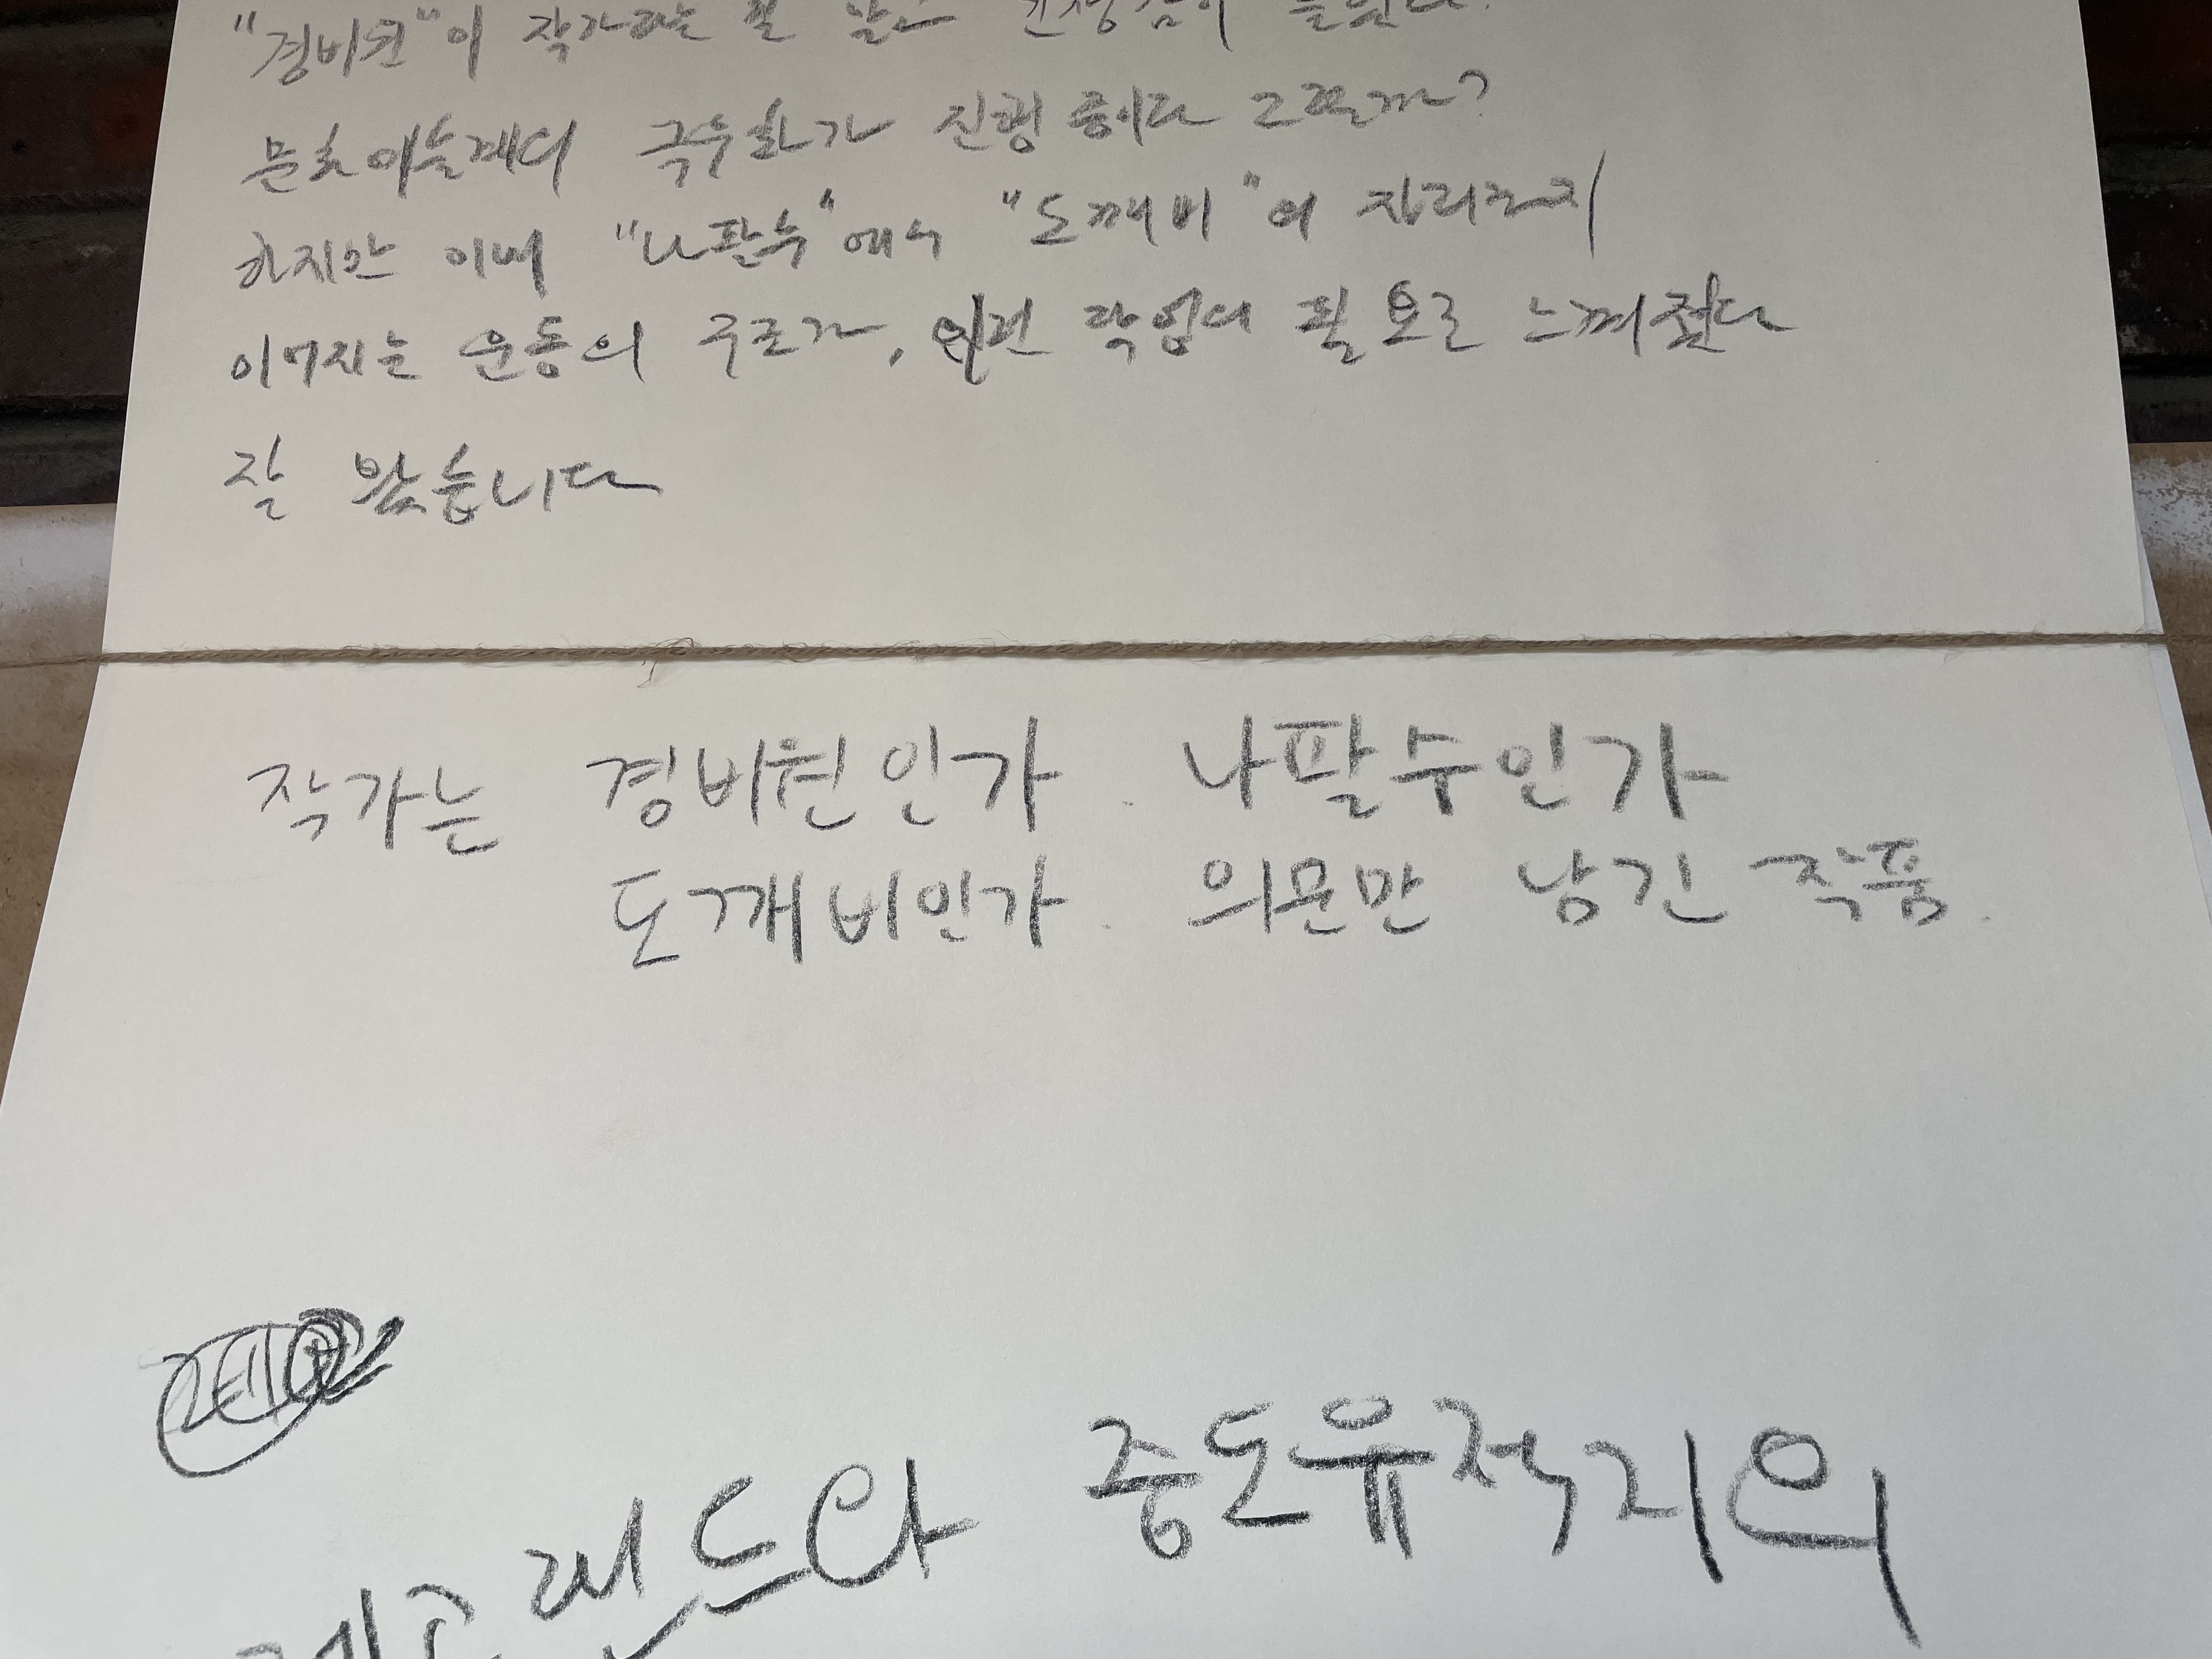 "경비원"이 작가라는
문화예술계의 극우화가 진행 중이라 그럴까?
하지만 이번 "나팔수"에서 "도깨비"의 자리까지
이어지는 운동의 구조가, 이런 작업의 필요로 느껴졌다
잘 봤습니다
작가는 경비원인가. 나팔수인가
도깨비인가. 의문만 남긴 작품.
중도유적지의